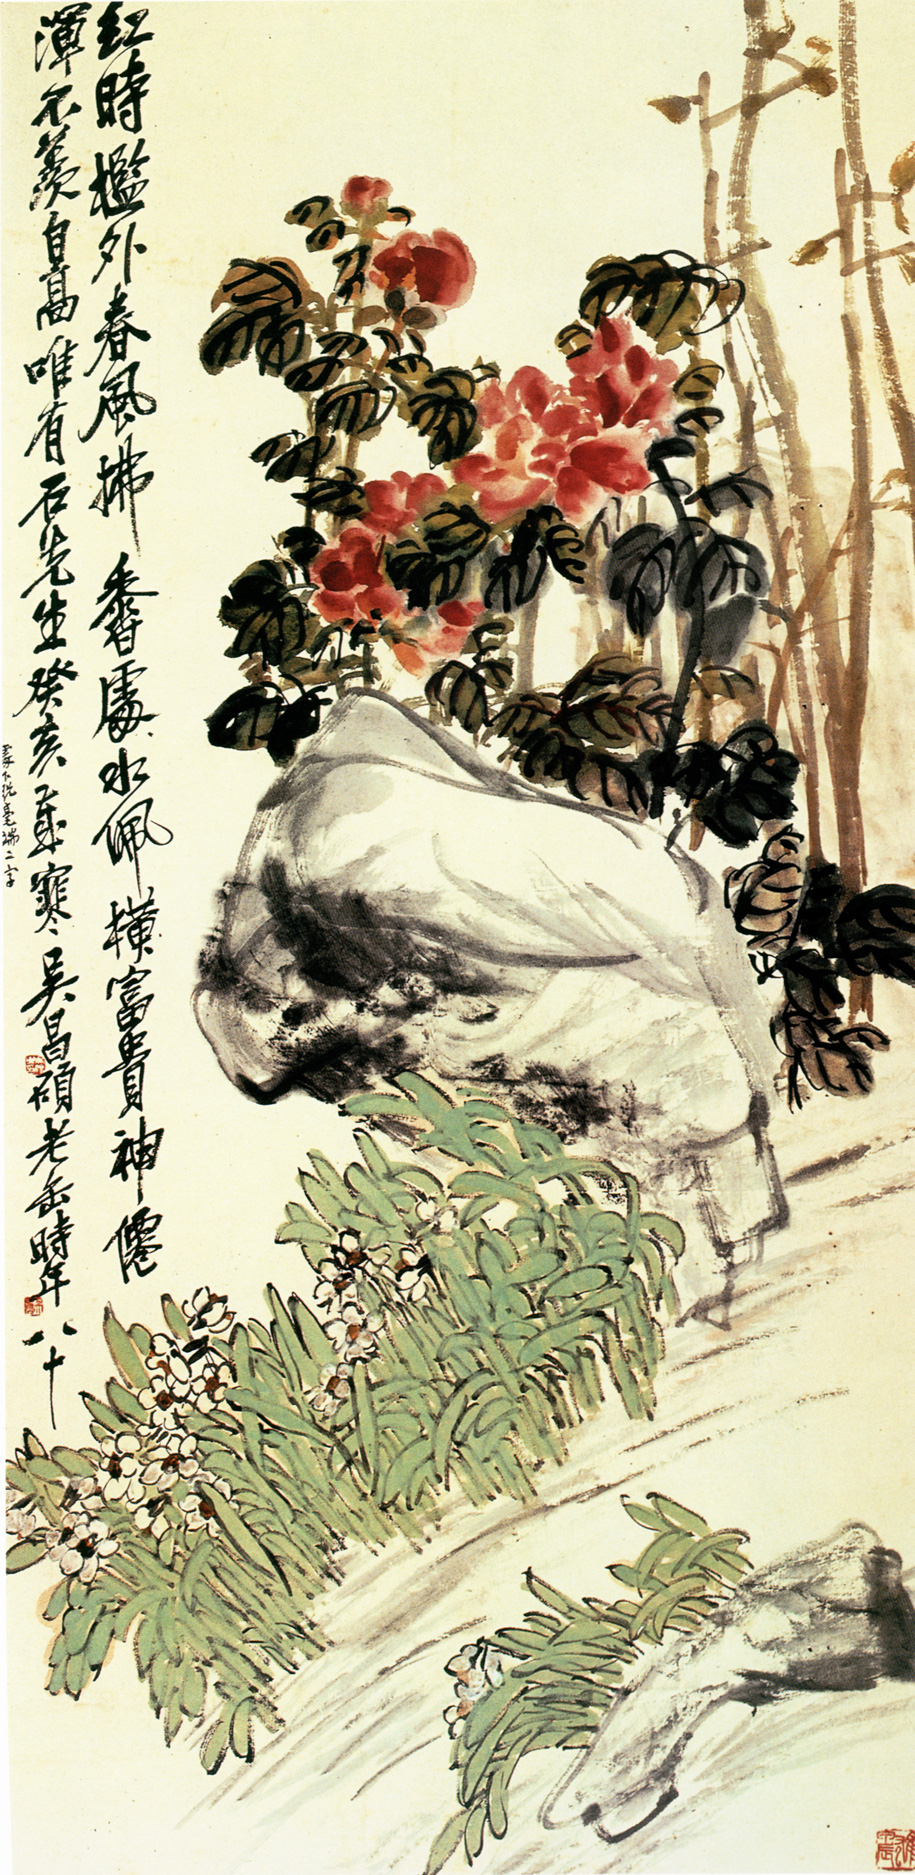 紅時檻外春風拂香處水佩橫富貴神僊
渾不羨自高唯有石先生癸亥歲寒吳昌碩老缶時年八十
毫端二字